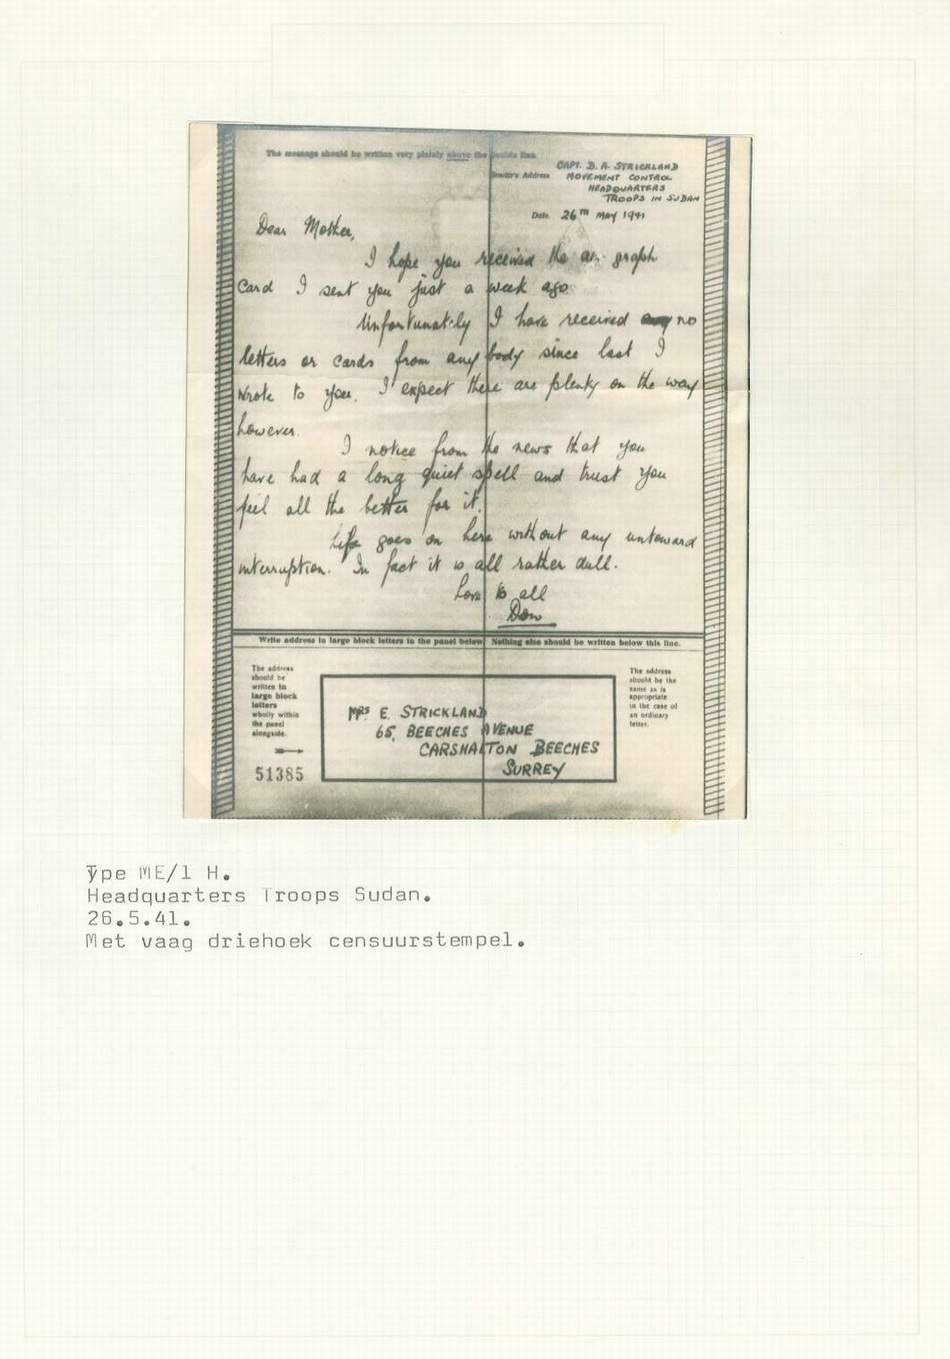 The message should be written very plainly above the double line.
Sender's Address
CAPT. D. A. STRICKLAND
MOVEMENT CONTROL
HEADQUARTERS
TROOPS IN SUDAN
Date 26TH MAY 1941
Dear Mother,
I hope you received the air graph
card I sent you just a week ago
Unfortunately I have received no
letters or cards from any body since last I
wrote to you. I expect there are plenty on the way
however.
I notice from the news that you
have had a long quiet spell and trust you
feel all the better for it.
Life goes on here without any untoward
interruption. In fact it is all rather dull.
Love to all
Don
Write address in large block letters in the panel below. Nothing else should be written below this line.
The address
should be
written in
large block
letters
wholly within
the panel
alongside.
51385
MRS E. STRICKLAND
65, BEECHES AVENUE
CARSHALTON BEECHES
SURREY
The address
should be the
same as is
appropriate
in the case of
an ordinary
letter.
Type ME/1 H.
Headquarters Troops Sudan.
26.5.41.
Met vaag driehoek censuurstempel.